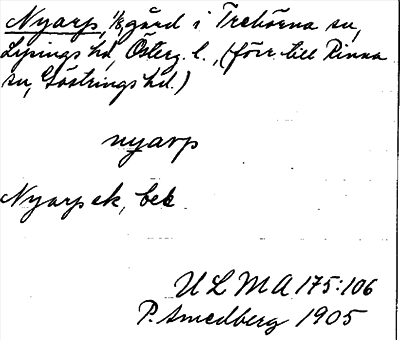 Nyarp, 1/8, gård i Trehörna sn,
Lysings hd, Österg. l., (förr till Rinna
sn, Göstrings hd.)
nyarp
Nyarp ek, bek
ULMA 175:106
P. Smedberg 1905